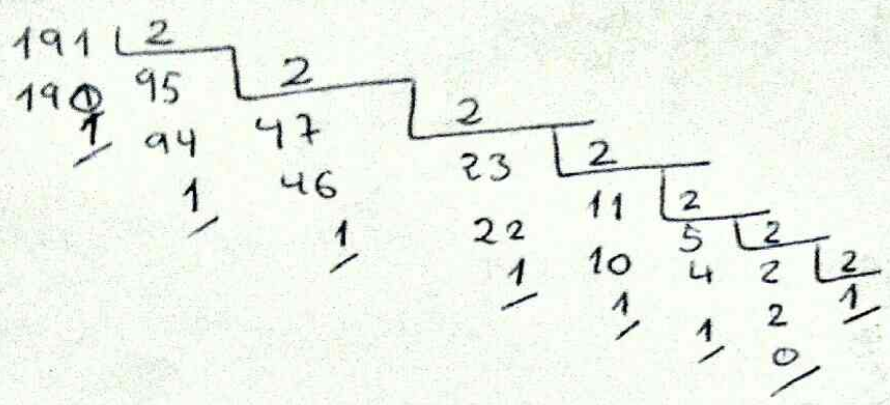 191 2
190 95 2
1 94 47 2
1 46 23 2
1 22 11 2
1 10 5 2
1 4 2 2
1 2 1
0